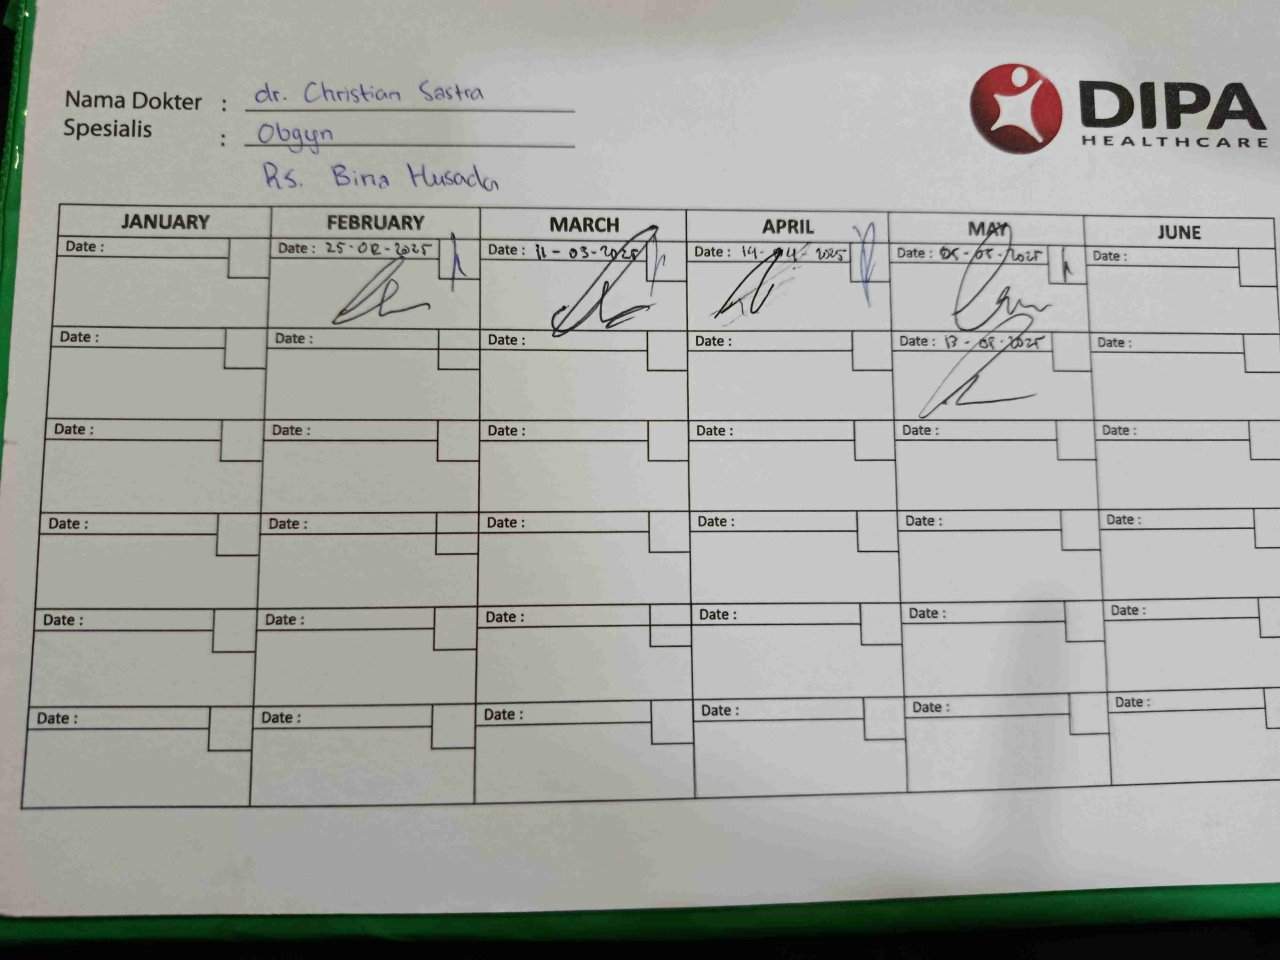 Nama Dokter : dr. Christian Sastra
Spesialis : Obgyn
Rs. Bina Husada
DIPA
HEALTHCARE
JANUARY FEBRUARY MARCH APRIL MAY JUNE
Date : Date : 25-02-2025 Date : 11-03-2025 Date : 14-04-2025 Date : 05-05-2025 Date :
Date : Date : Date : Date : Date : 13-05-2025 Date :
Date : Date : Date : Date : Date : Date :
Date : Date : Date : Date : Date : Date :
Date : Date : Date : Date : Date : Date :
Date : Date : Date : Date : Date : Date :